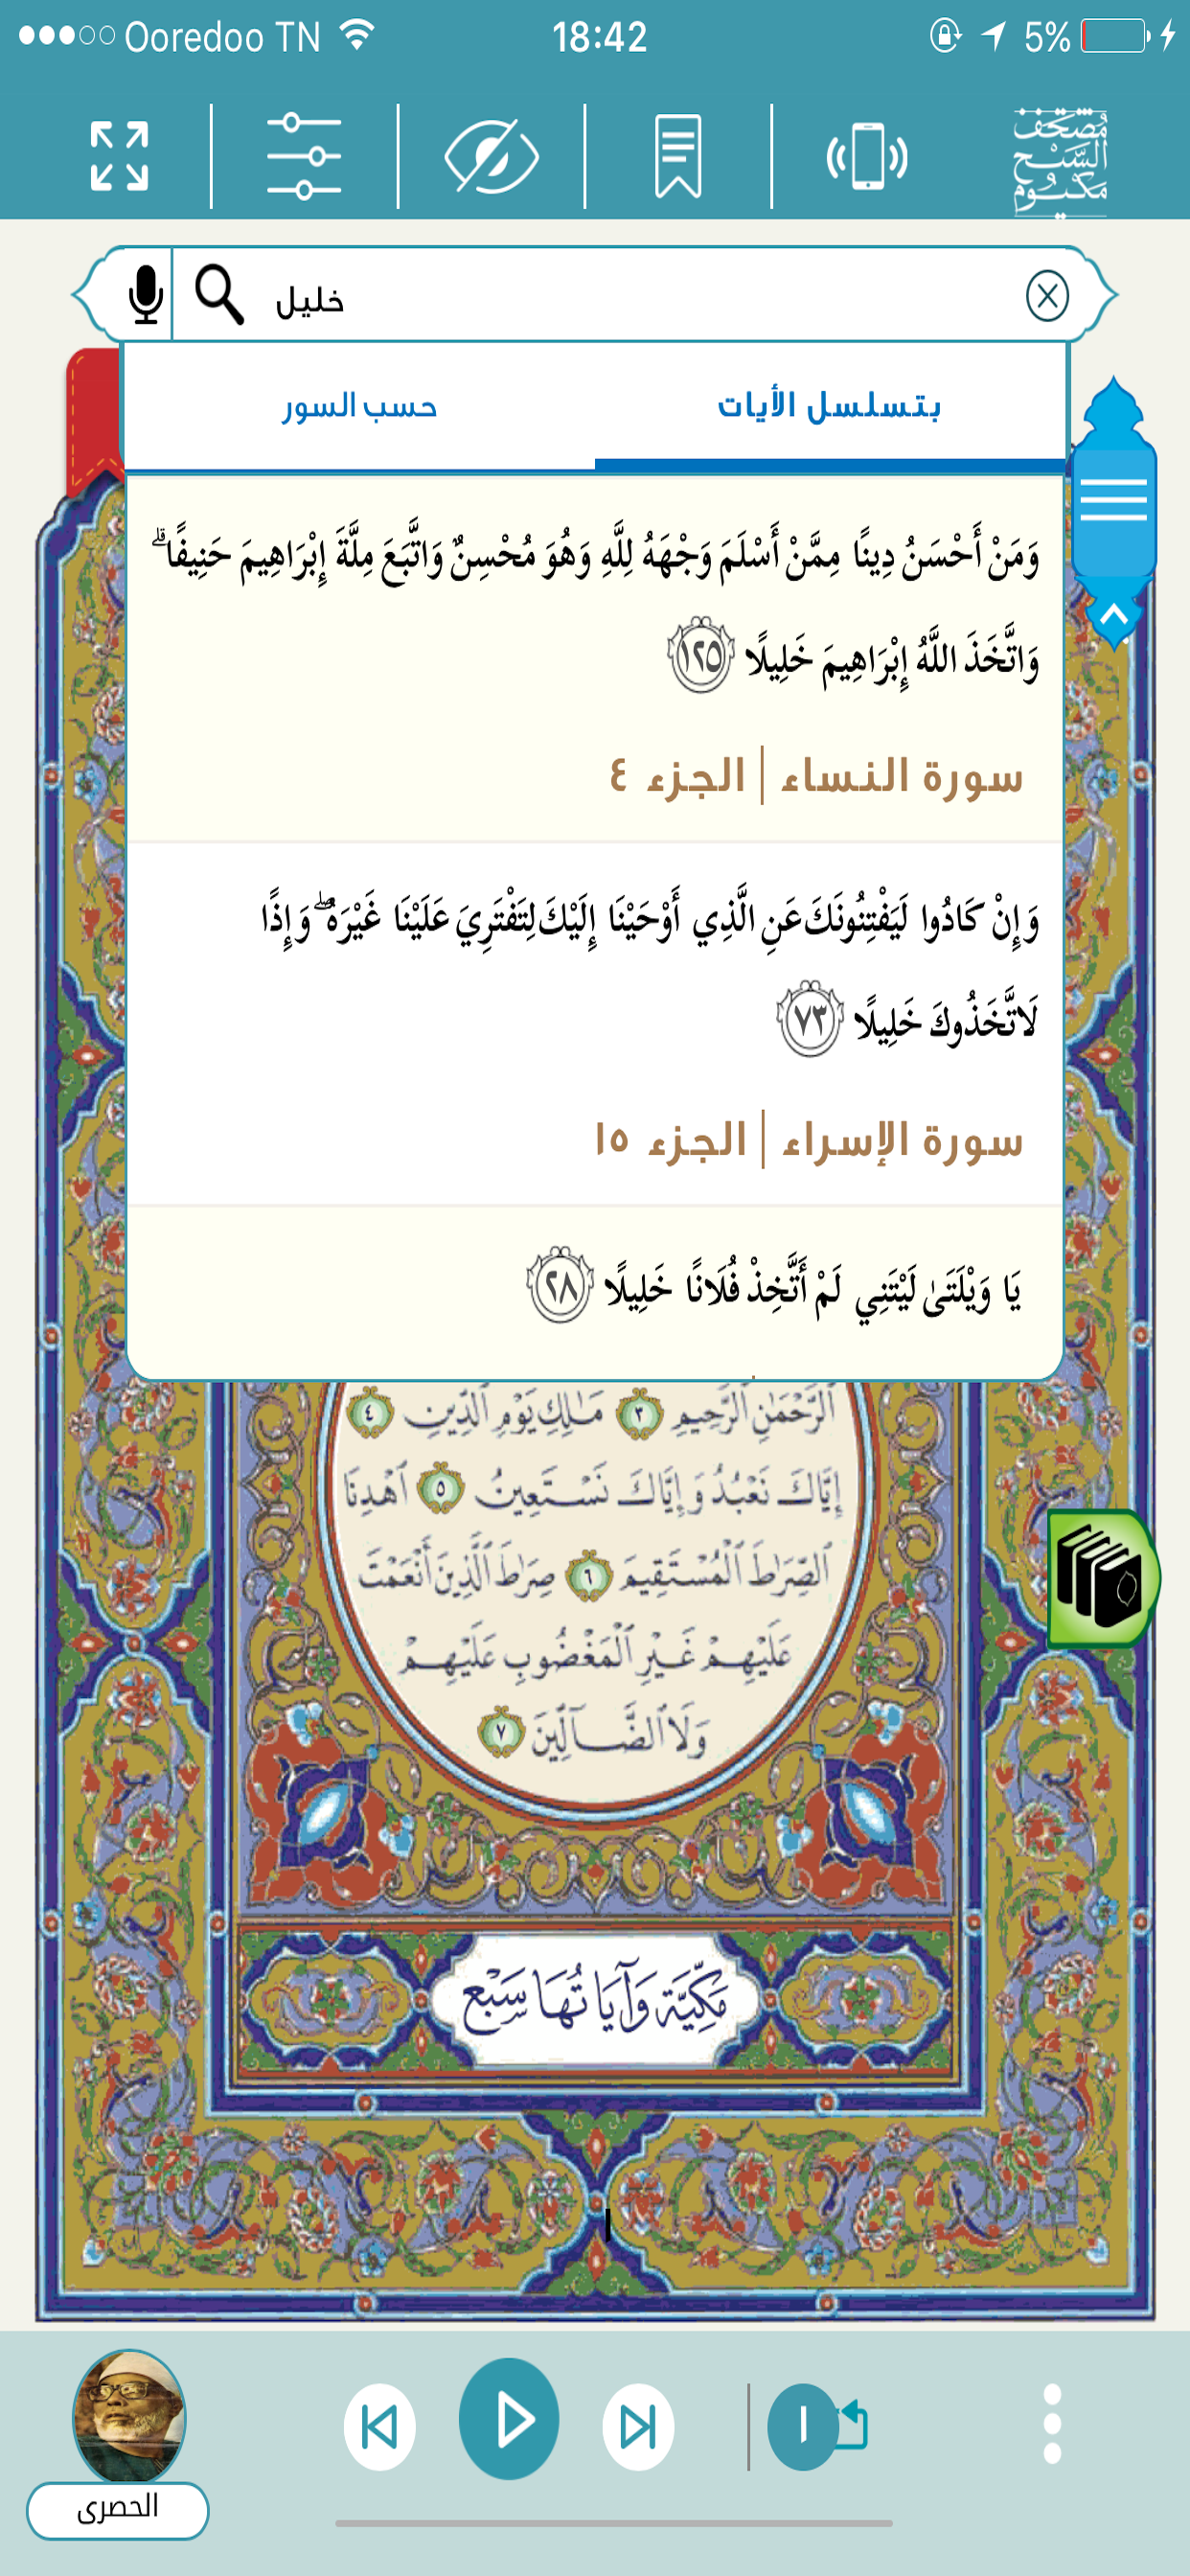 Ooredoo TN 18:42 5%
مصحف
السبح
مكيوم
خليل
بتسلسل الأيات حسب السور
وَمَنْ أَحْسَنُ دِينًا مِمَّنْ أَسْلَمَ وَجْهَهُ لِلَّهِ وَهُوَ مُحْسِنٌ وَاتَّبَعَ مِلَّةَ إِبْرَاهِيمَ حَنِيفًا ۗ
وَاتَّخَذَ اللَّهُ إِبْرَاهِيمَ خَلِيلًا ١٢٥
سورة النساء | الجزء ٤
وَإِنْ كَادُوا لَيَفْتِنُونَكَ عَنِ الَّذِي أَوْحَيْنَا إِلَيْكَ لِتَفْتَرِيَ عَلَيْنَا غَيْرَهُ ۖ وَإِذًا
لَاتَّخَذُوكَ خَلِيلًا ٧٣
سورة الإسراء | الجزء ١٥
يَا وَيْلَتَىٰ لَيْتَنِي لَمْ أَتَّخِذْ فُلَانًا خَلِيلًا ٢٨
ٱلرَّحْمَٰنِ ٱلرَّحِيمِ ٣ مَٰلِكِ يَوْمِ ٱلدِّينِ ٤
إِيَّاكَ نَعْبُدُ وَإِيَّاكَ نَسْتَعِينُ ٥ ٱهْدِنَا
ٱلصِّرَٰطَ ٱلْمُسْتَقِيمَ ٦ صِرَٰطَ ٱلَّذِينَ أَنْعَمْتَ
عَلَيْهِمْ غَيْرِ ٱلْمَغْضُوبِ عَلَيْهِمْ
وَلَا ٱلضَّآلِّينَ ٧
مَكِّيَّة وَآيَاتُهَا سَبْع
١
١
الحصرى